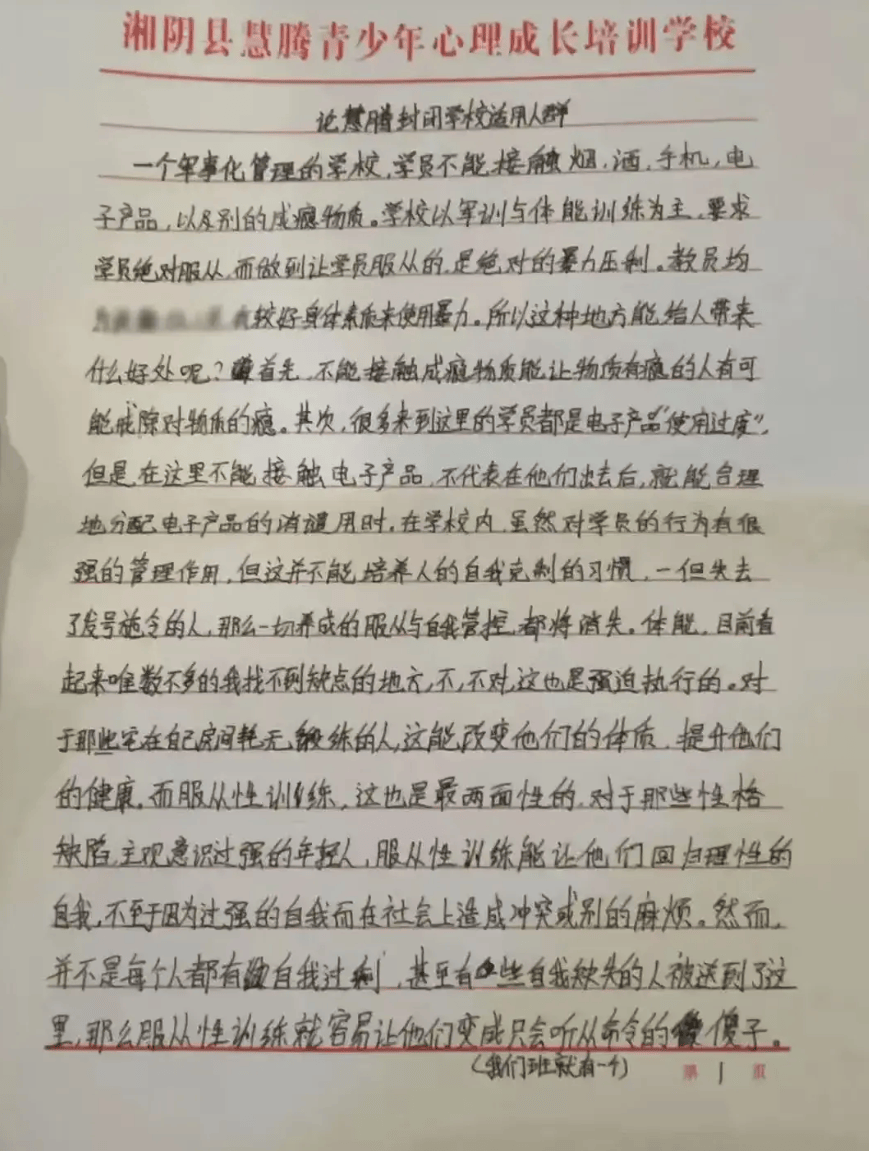 湘阴县慧腾青少年心理成长培训学校
论慧腾封闭学校适用人群
一个军事化管理的学校,学员不能接触烟、酒,手机,电
子产品,以及别的成瘾物质。学校以军训与体能训练为主,要求
学员绝对服从,而做到让学员服从的,是绝对的暴力压制。教员均
较好身体素质来使用暴力。所以这种地方能给人带来
什么好处呢?首先,不能接触成瘾物质能让物质有瘾的人有可
能戒除对物质的瘾。其次,很多来到这里的学员都是电子产品“使用过度”,
但是,在这里不能接触电子产品,不代表在他们出去后,就能合理
地分配电子产品的使用时。在学校内,虽然对学员的行为有很
强的管理作用,但这并不能培养人的自我克制的习惯,一但失去
了发号施令的人,那么一切养成的服从与自我管控,都将消失。体能,目前看
起来唯数不多的我找不到缺点的地方,不,不对,这也是强迫执行的。对
于那些宅在自己房间毫无锻练的人,这能改变他们的体质,提升他们
的健康。而服从性训练,这也是最两面性的,对于那些性格
缺陷,主观意识过强的年轻人,服从性训练能让他们回归理性的
自我,不至于因为过强的自我而在社会上造成冲突或别的麻烦。然而,
并不是每个人都有自我过剩,甚至有些自我缺失的人被送到了这
里,那么服从性训练就容易让他们变成只会听从命令的傻子。
(我们班就有一个)
第 1 页